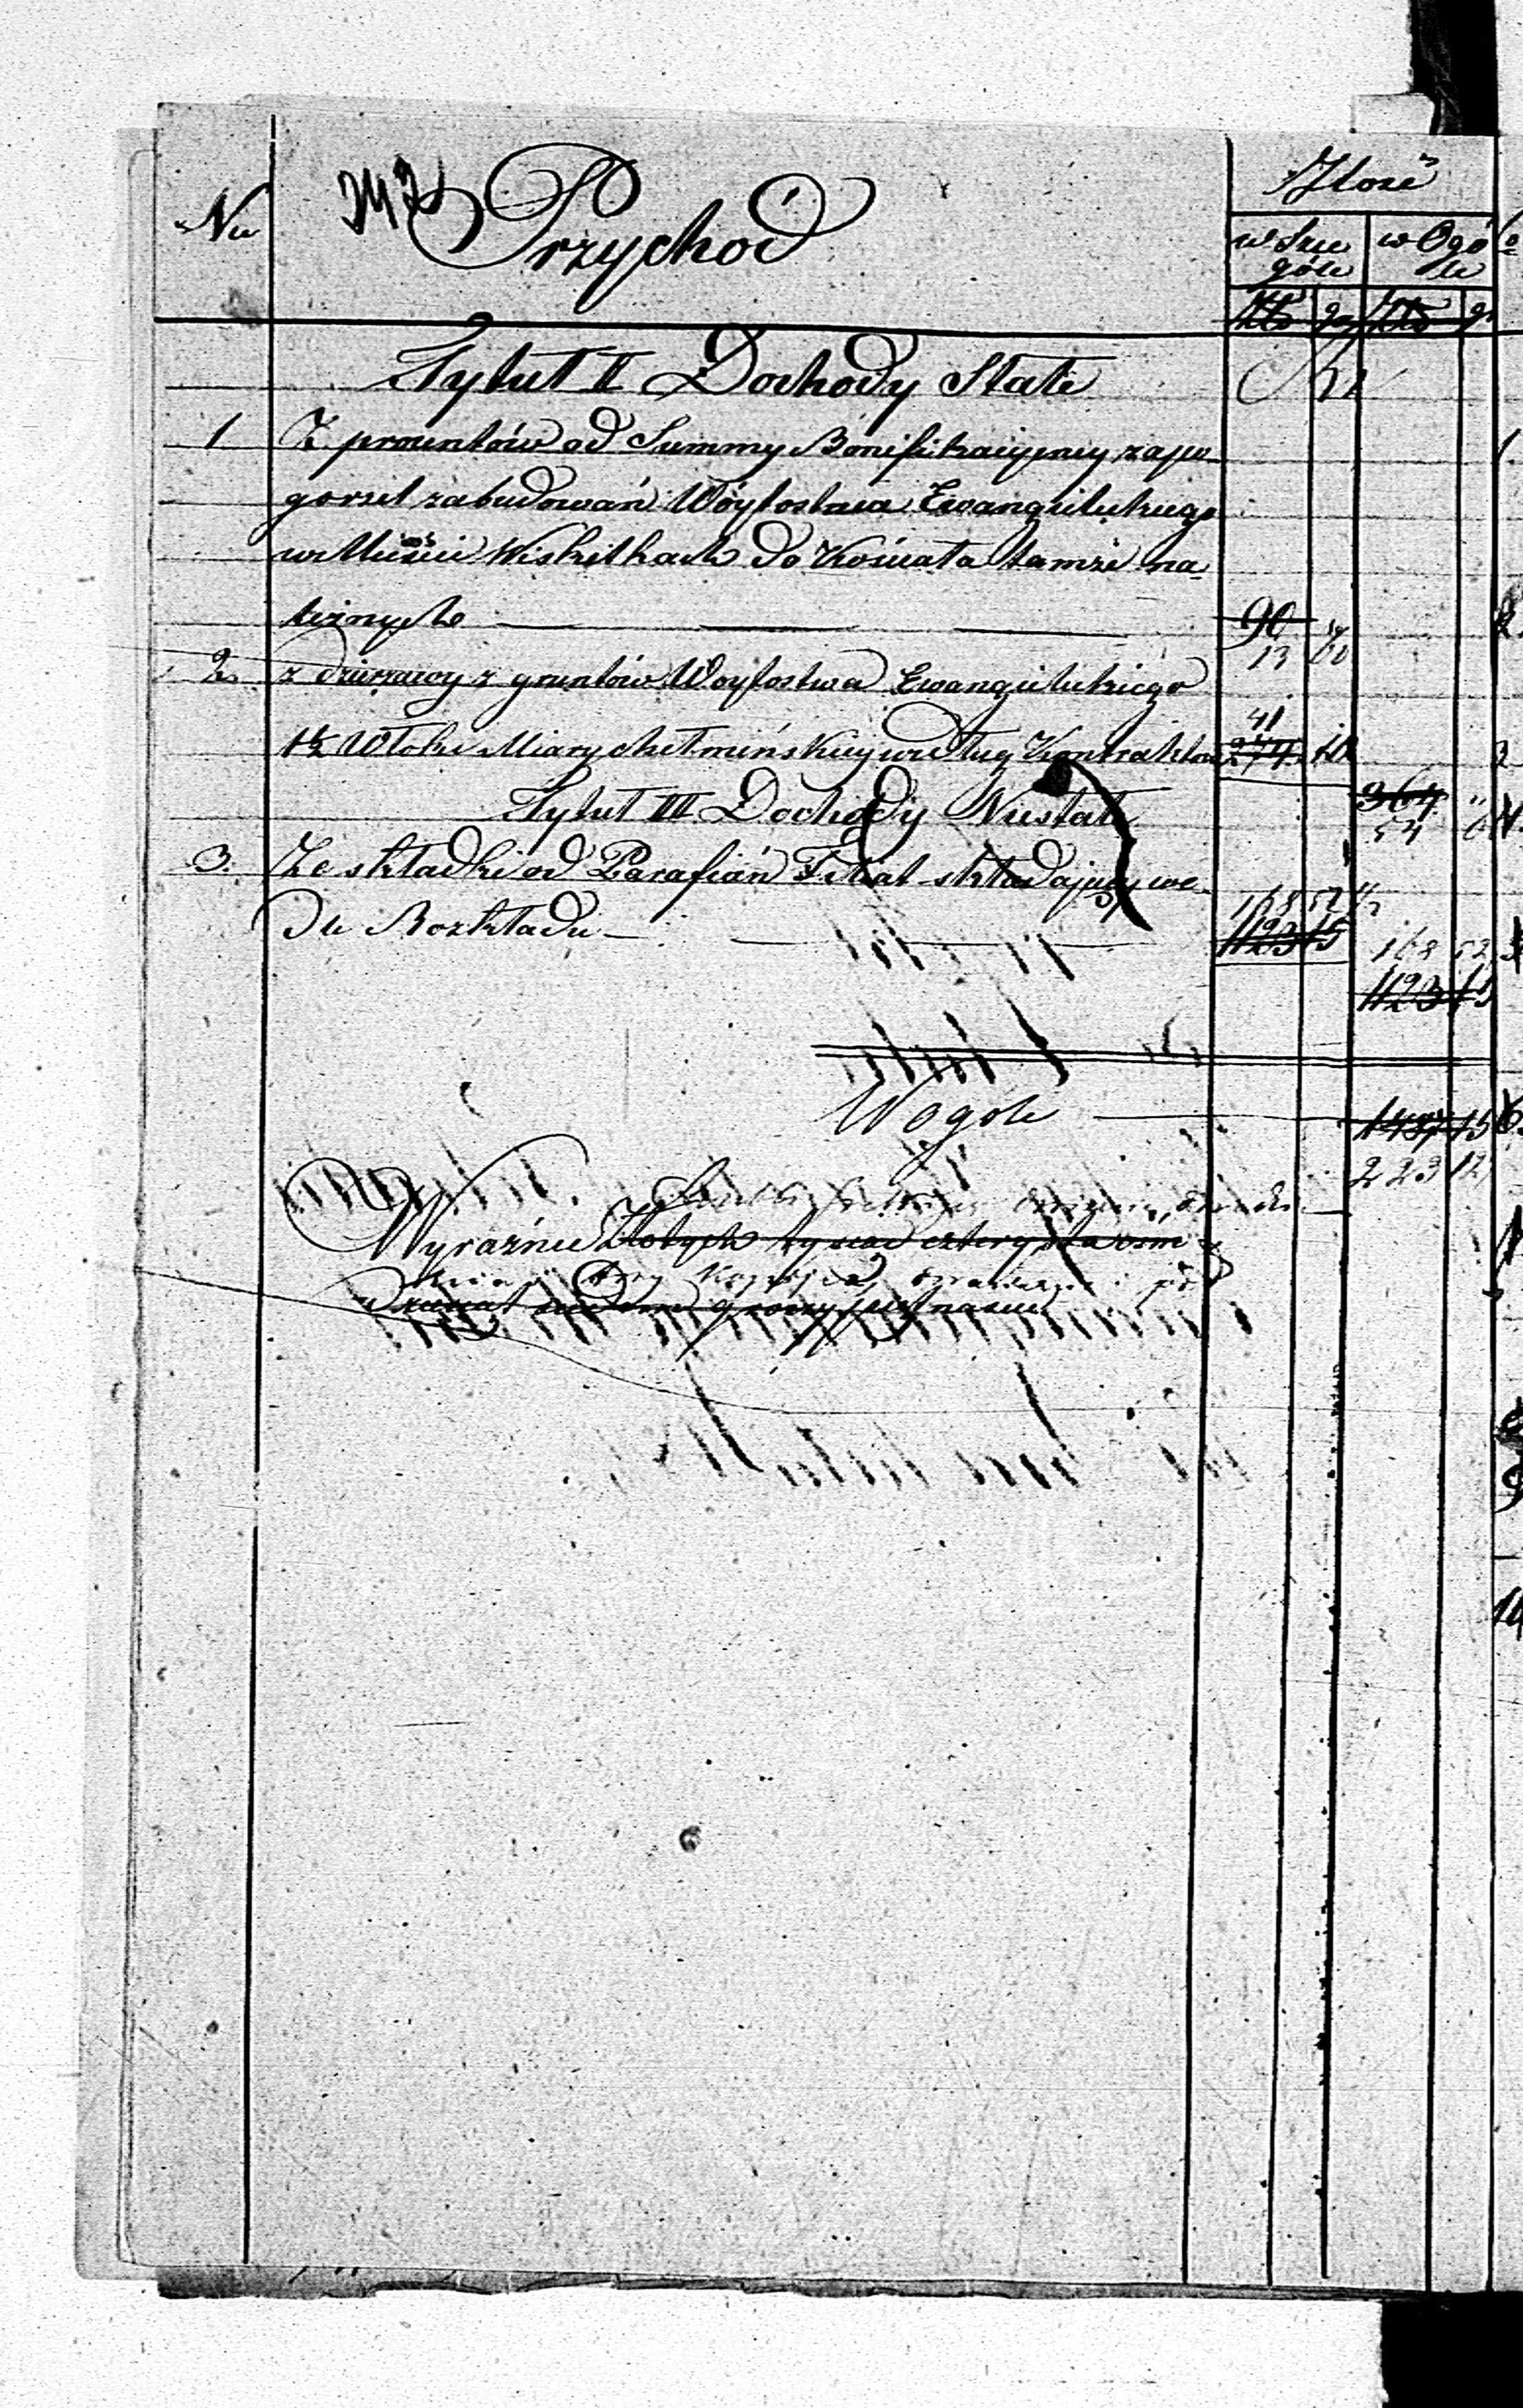 Nu
Przychod
Ilość
w Szcze
góle
w Ogó
le
Złp gr Złp gr
Tytuł II Dochody Stałe
1 Z procentów od Summy Bonifikacyjney za po
gorzel zabudowań Wóytostwa Ewangielickiego
w Mieście Wiskitkach do Kościoła tamże na
leżnych 90 "
13
2. z dzierżawy z gruntów Woytostwa Ewangielickiego
41
1½ Włoki Miary chełmińskiey według Kontraktu 274
364 "
54
Tytuł III Dochody Niestałe
3. Ze składki od Parafian Filiał składający we
168 52
dle Rozkładu 1123 15
168 52
1123 15
W ogole 1487 15
223 12
Wyraźnie Złotych tysiąc czterysta ośm
dziesiąt siedem groszy piętnaście